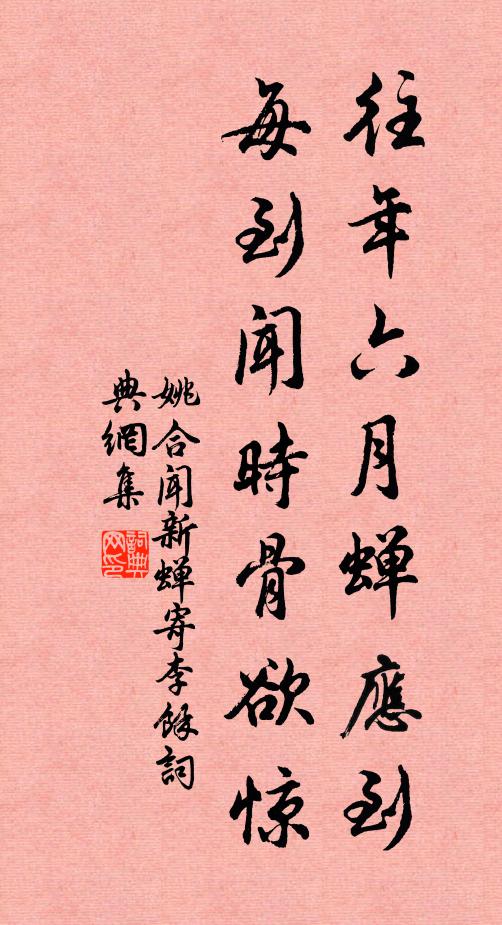 往年六月蝉應到
每到聞時骨欲惊
姚合聞新蝉寄李馀詞
典網集
詞典网印